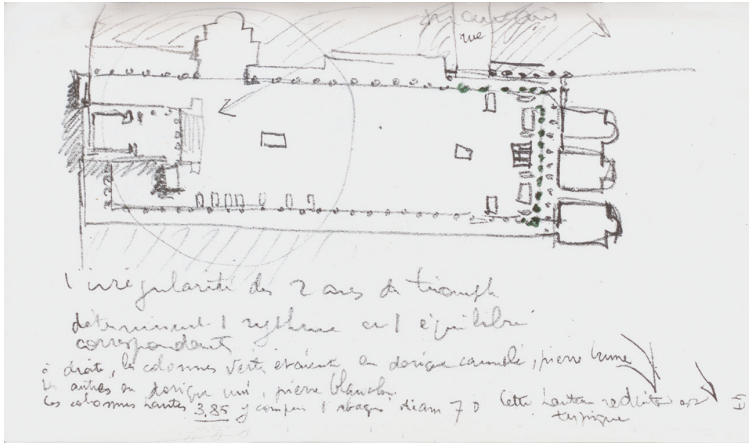 rue
l'irrégularité des 2 arcs de triomph
déterminent 1 rythme et 1 équilibre
correspondants
à droite, les colonnes verts étaient en dorique cannelé, pierre brune
les autres en dorique uni, pierre blanche
Les colonnes hautes 3,85 y compris l abaque diam 70 Cette hauteur réduite est
typique